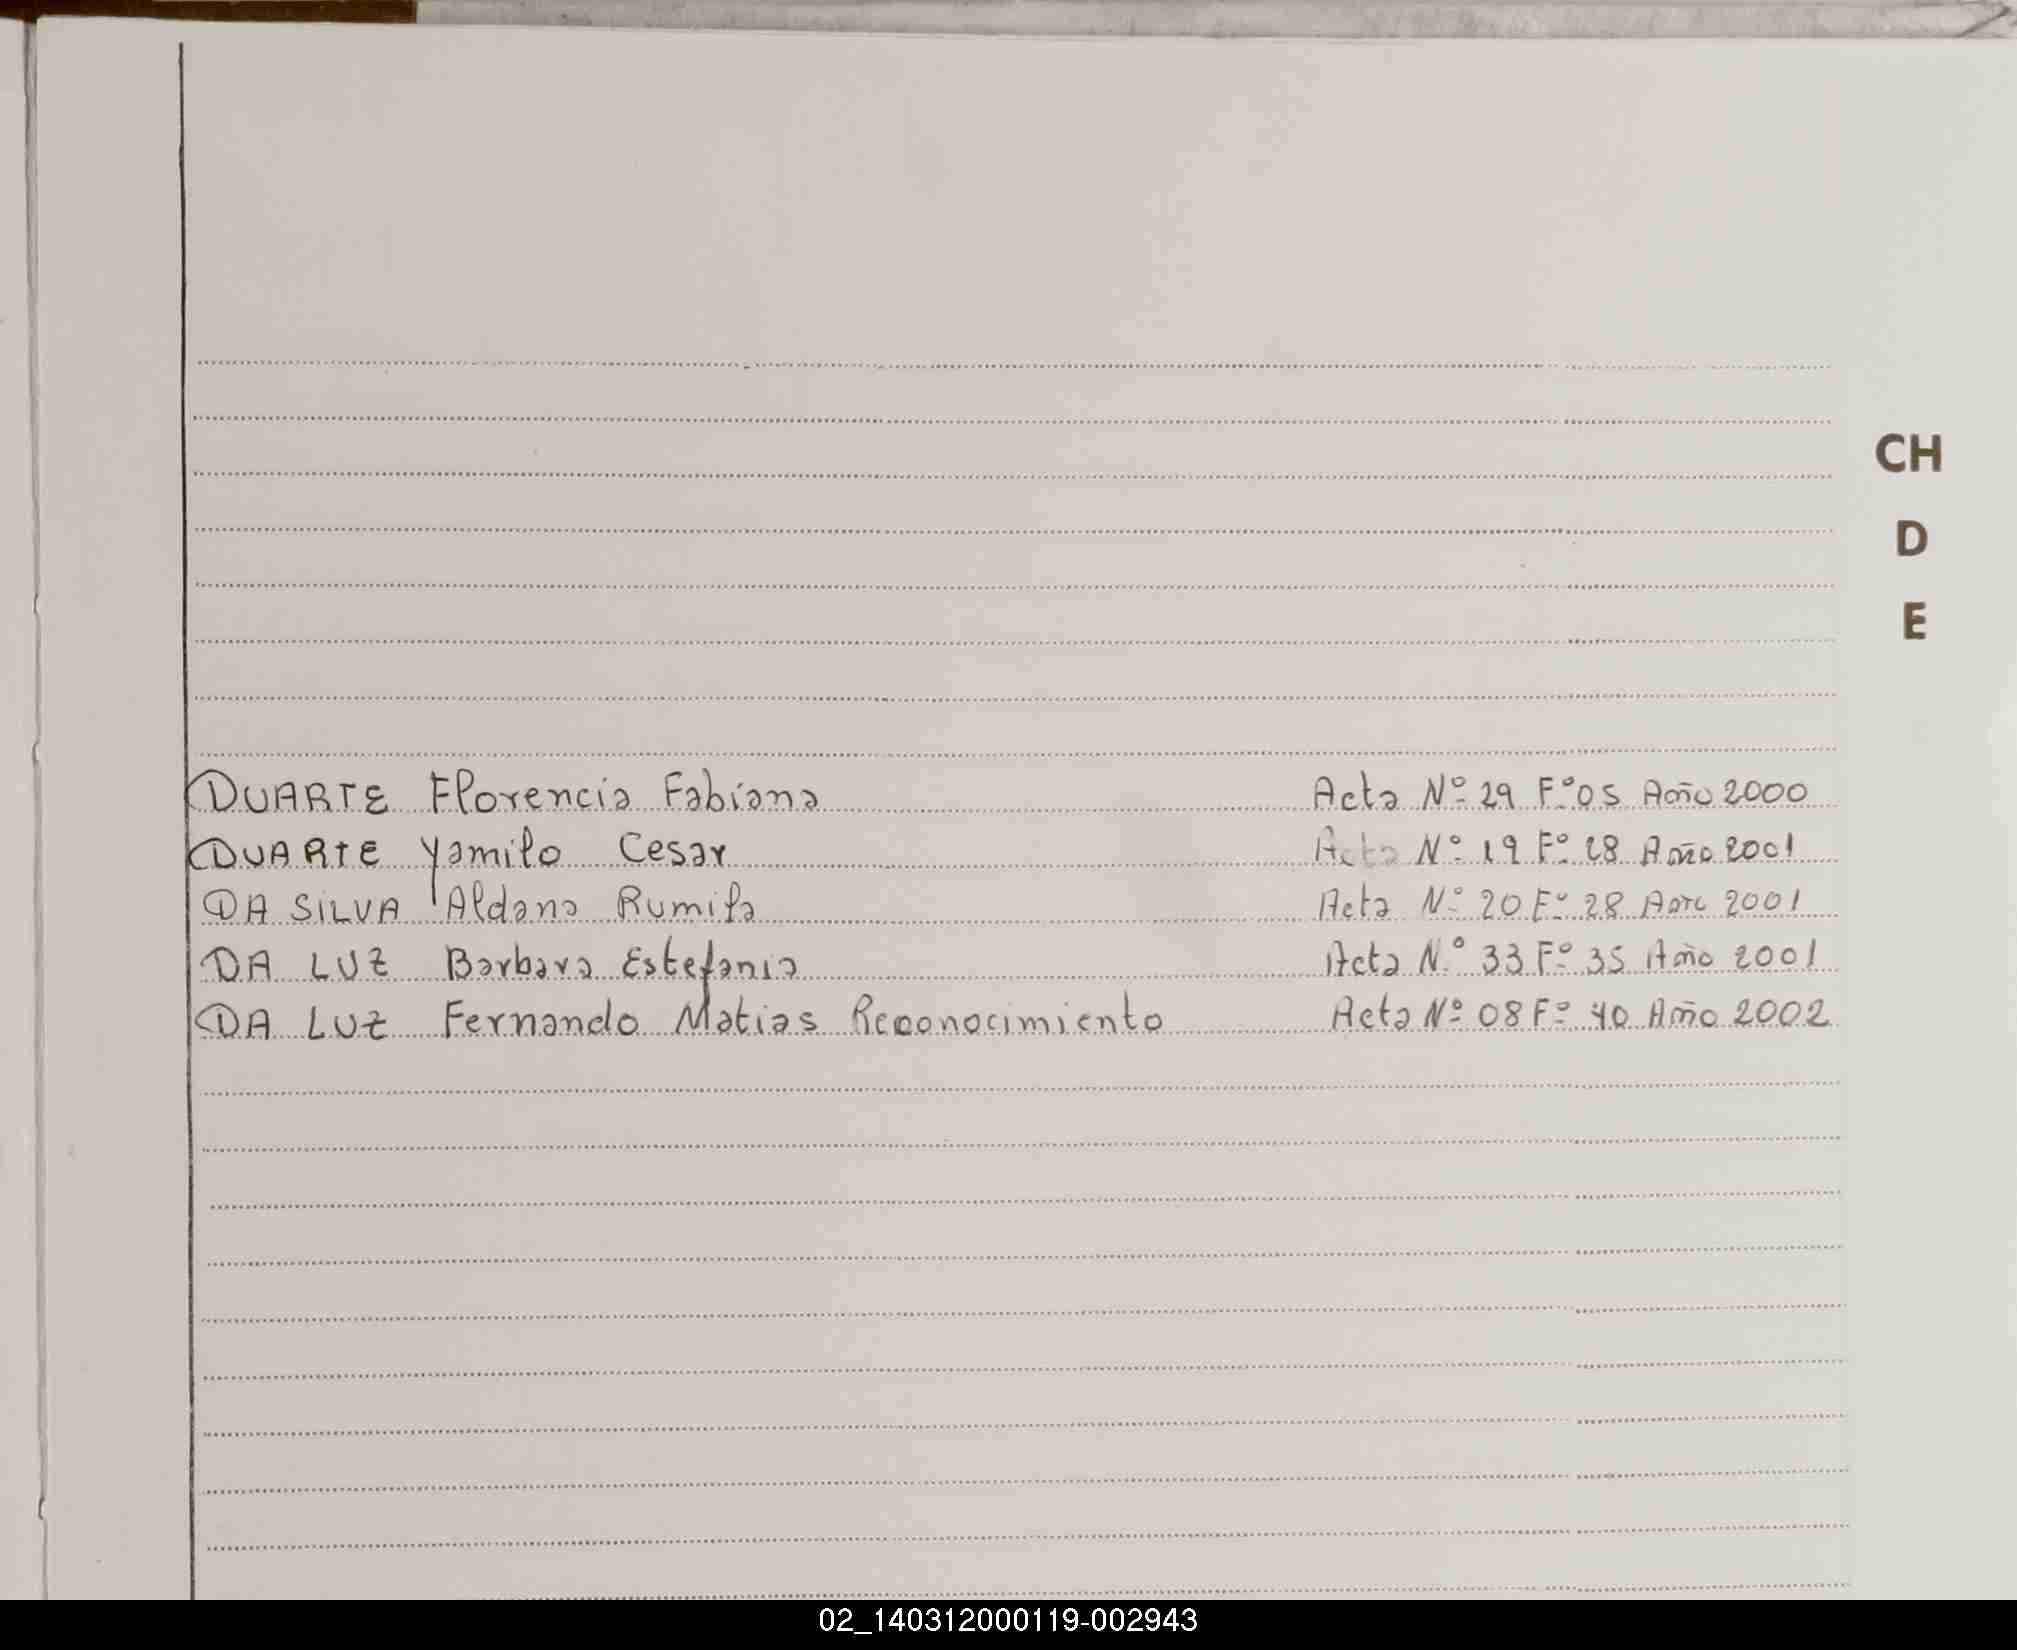 CH
D
E
DUARTE Florencia Fabiana Acta Nº 29 Fº 05 Año 2000
DUARTE Yamilo Cesar Acta Nº 19 Fº 28 Año 2001
DA SILVA Aldana Rumila Acta Nº 20 Fº 28 Año 2001
DA LUZ Barbara Estefania Acta Nº 33 Fº 35 Año 2001
DA LUZ Fernando Matias Reconocimiento Acta Nº 08 Fº 40 Año 2002
02_140312000119-002943